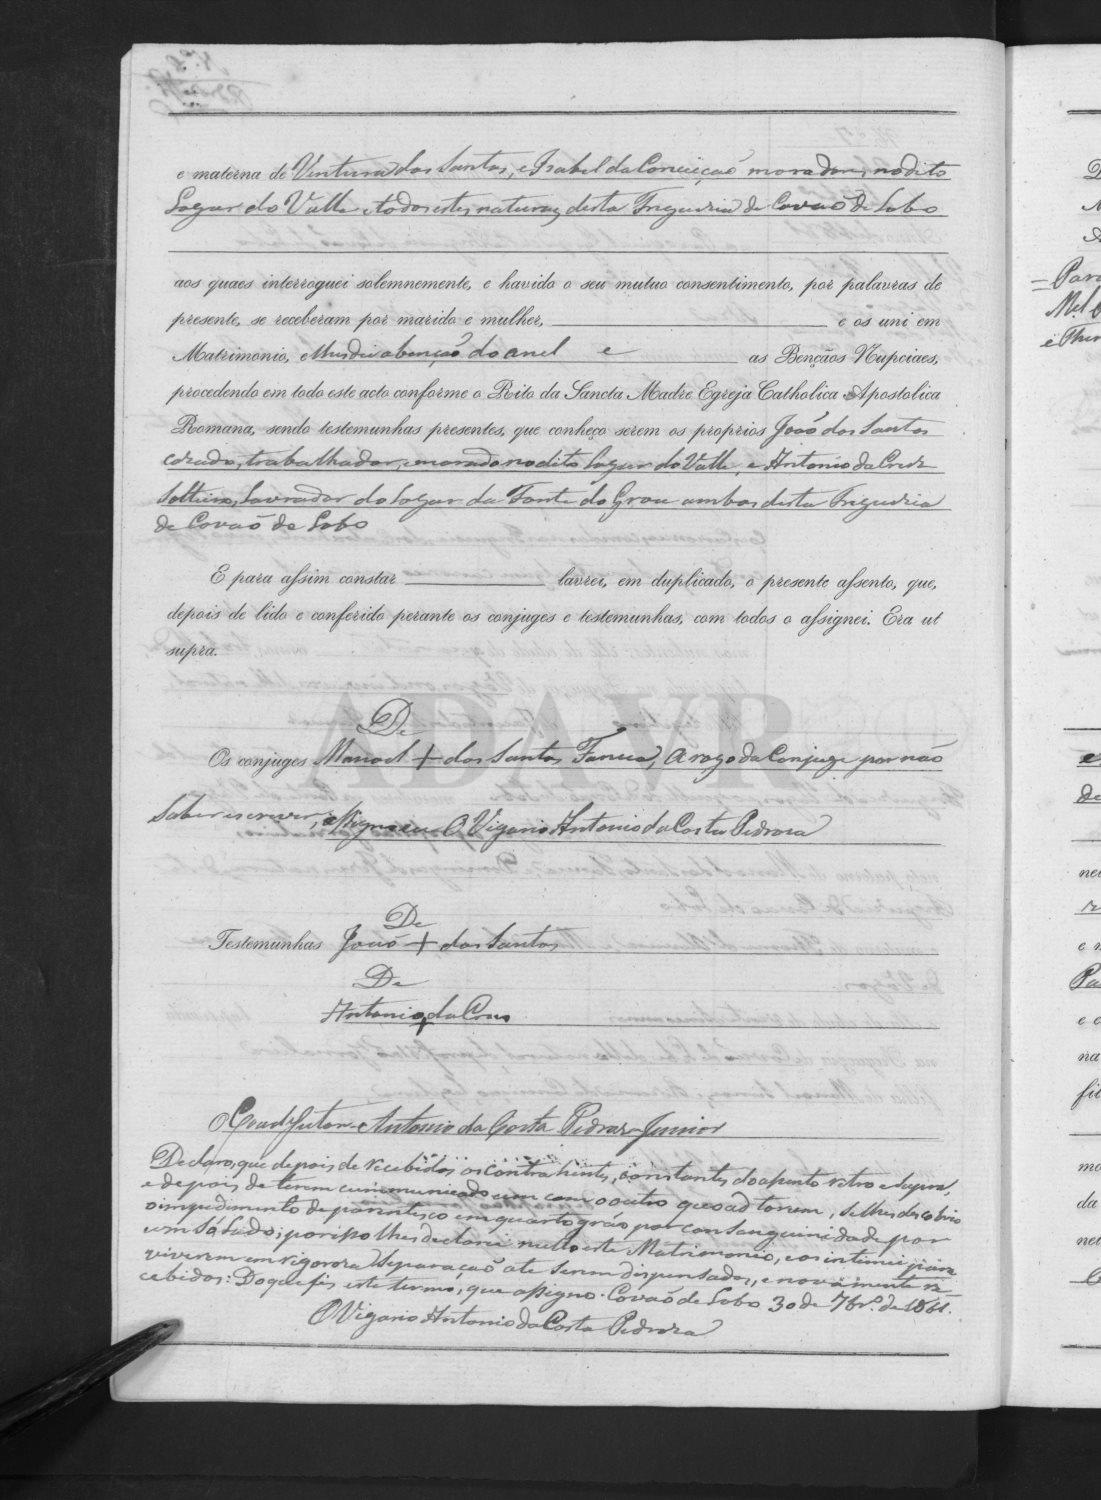 e materna de Ventura dos Santos, e Isabel da Conceiçaõ moradores no dito
Lugar do Valle e todos estes naturaes desta Freguezia de Covaõ do Lobo
aos quaes interroguei solemnemente, e havido o seu mutuo consentimento, por palavras de
presente, se receberam por marido e mulher, e os uni em
Matrimonio, e lhes dei a bençaõ do anel e as Bençãos Nupciaes,
procedendo em todo este acto conforme o Rito da Sancta Madre Egreja Catholica Apostolica
Romana, sendo testemunhas presentes, que conheço serem os proprios Joaõ dos Santos
cazado, trabalhador, morador no dito Lugar do Valle, e Antonio da Cruz
Solteiro, Lavrador do Lugar da Fonte do Grou ambos desta Freguezia
de Covaõ do Lobo
E para assim constar lavrei, em duplicado, o presente assento, que,
depois de lido e conferido perante os conjuges e testemunhas, com todos o assignei. Era ut
supra.
ADAVR
De
Os conjuges Manoel + dos Santos, A rogo da Conjuge por não
Saber escrever, assignou O Vigario Antonio da Costa Pedroza
De
Testemunhas Joaõ + dos Santos
De
Antonio + da Cruz
O Coadjutor Antonio da Costa Pedroza Junior
Declaro, que depois de recebidos os contrahentes, constantes do assento retro e supra,
e depois de terem communicado um com o outro quoad torum, se lhes descobrio
o impedimento de parentesco em quarto gráo por consanguinidade por
um só lado; por isso lhes declarei nullo este Matrimonio, e os intimei para
viverem em rigoroza Separaçaõ até serem dispensados, e novamente re-
cebidos: Do que fiz este termo, que assigno. Covaõ do Lobo 30 de 7br.º de 1861.
O Vigario Antonio da Costa Pedroza